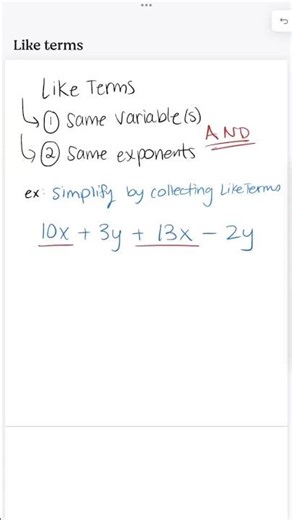 Like terms
Like Terms
① Same variable(s)
AND
② Same exponents
ex: Simplify by collecting Like Terms
10x + 3y + 13x - 2y